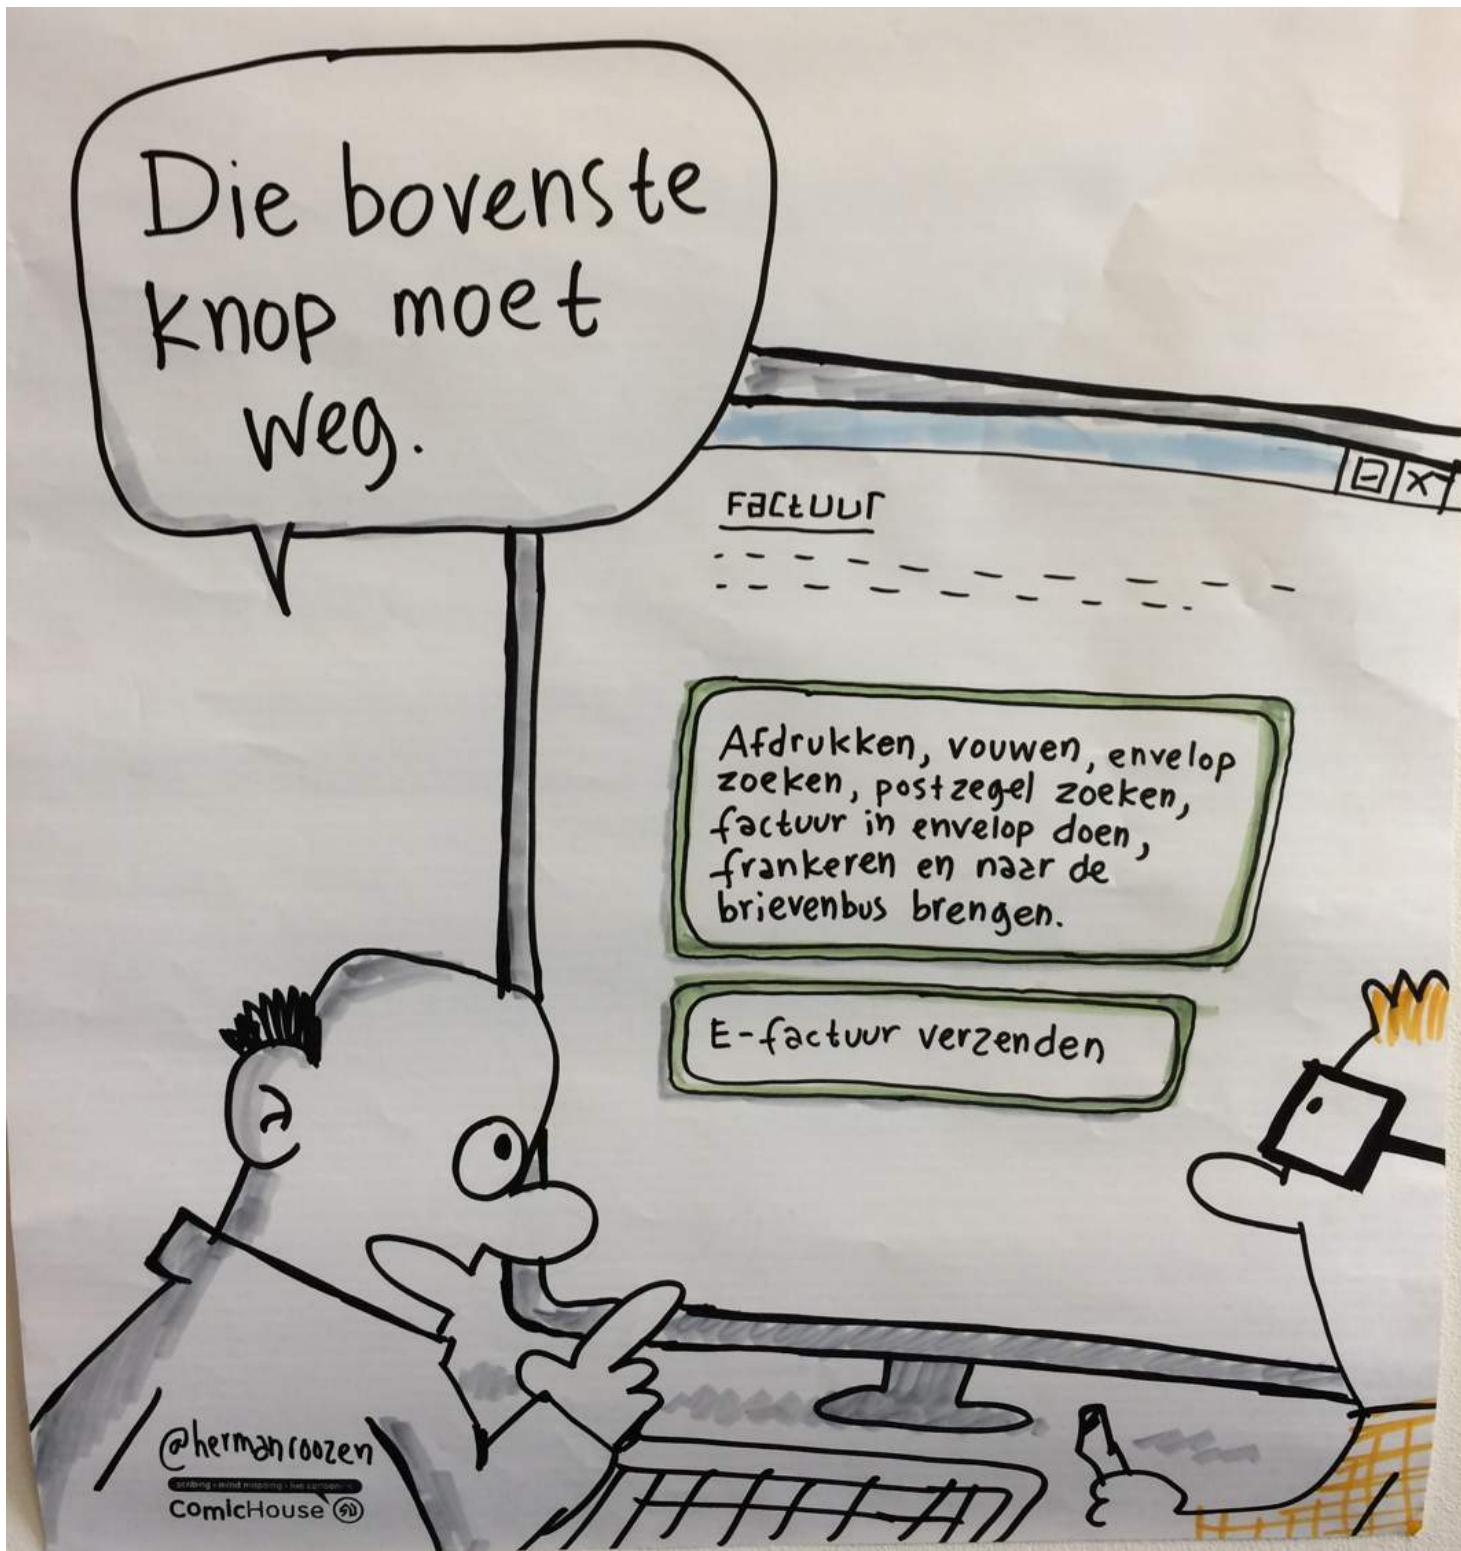 Die bovenste
knop moet
weg.
Factuur
Afdrukken, vouwen, envelop
zoeken, postzegel zoeken,
factuur in envelop doen,
frankeren en naar de
brievenbus brengen.
E-factuur verzenden
@hermanroozen
scribing - mind mapping - live cartoons
ComicHouse